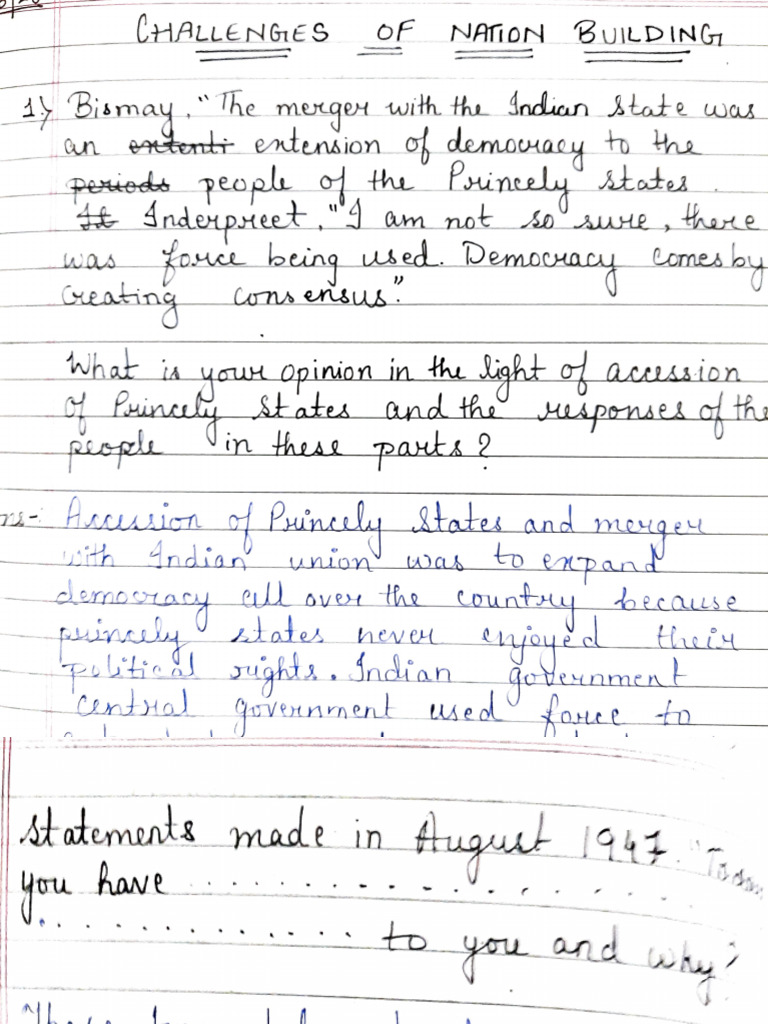 CHALLENGES OF NATION BUILDING
1) Bismay, "The merger with the Indian State was
an extenti extension of democracy to the
periods people of the Princely States.
It Inderpreet, "I am not so sure, there
was force being used. Democracy comes by
creating consensus".
What is your opinion in the light of accession
of Princely States and the responses of the
people in these parts?
Ans- Accession of Princely States and merger
with Indian union was to expand
democracy all over the country because
princely states never enjoyed their
political rights. Indian government
central government used force to
statements made in August 1947. "Today
you have . . . . . . . . . . . . . . . .
. . . . . . . . . . . . . to you and why?